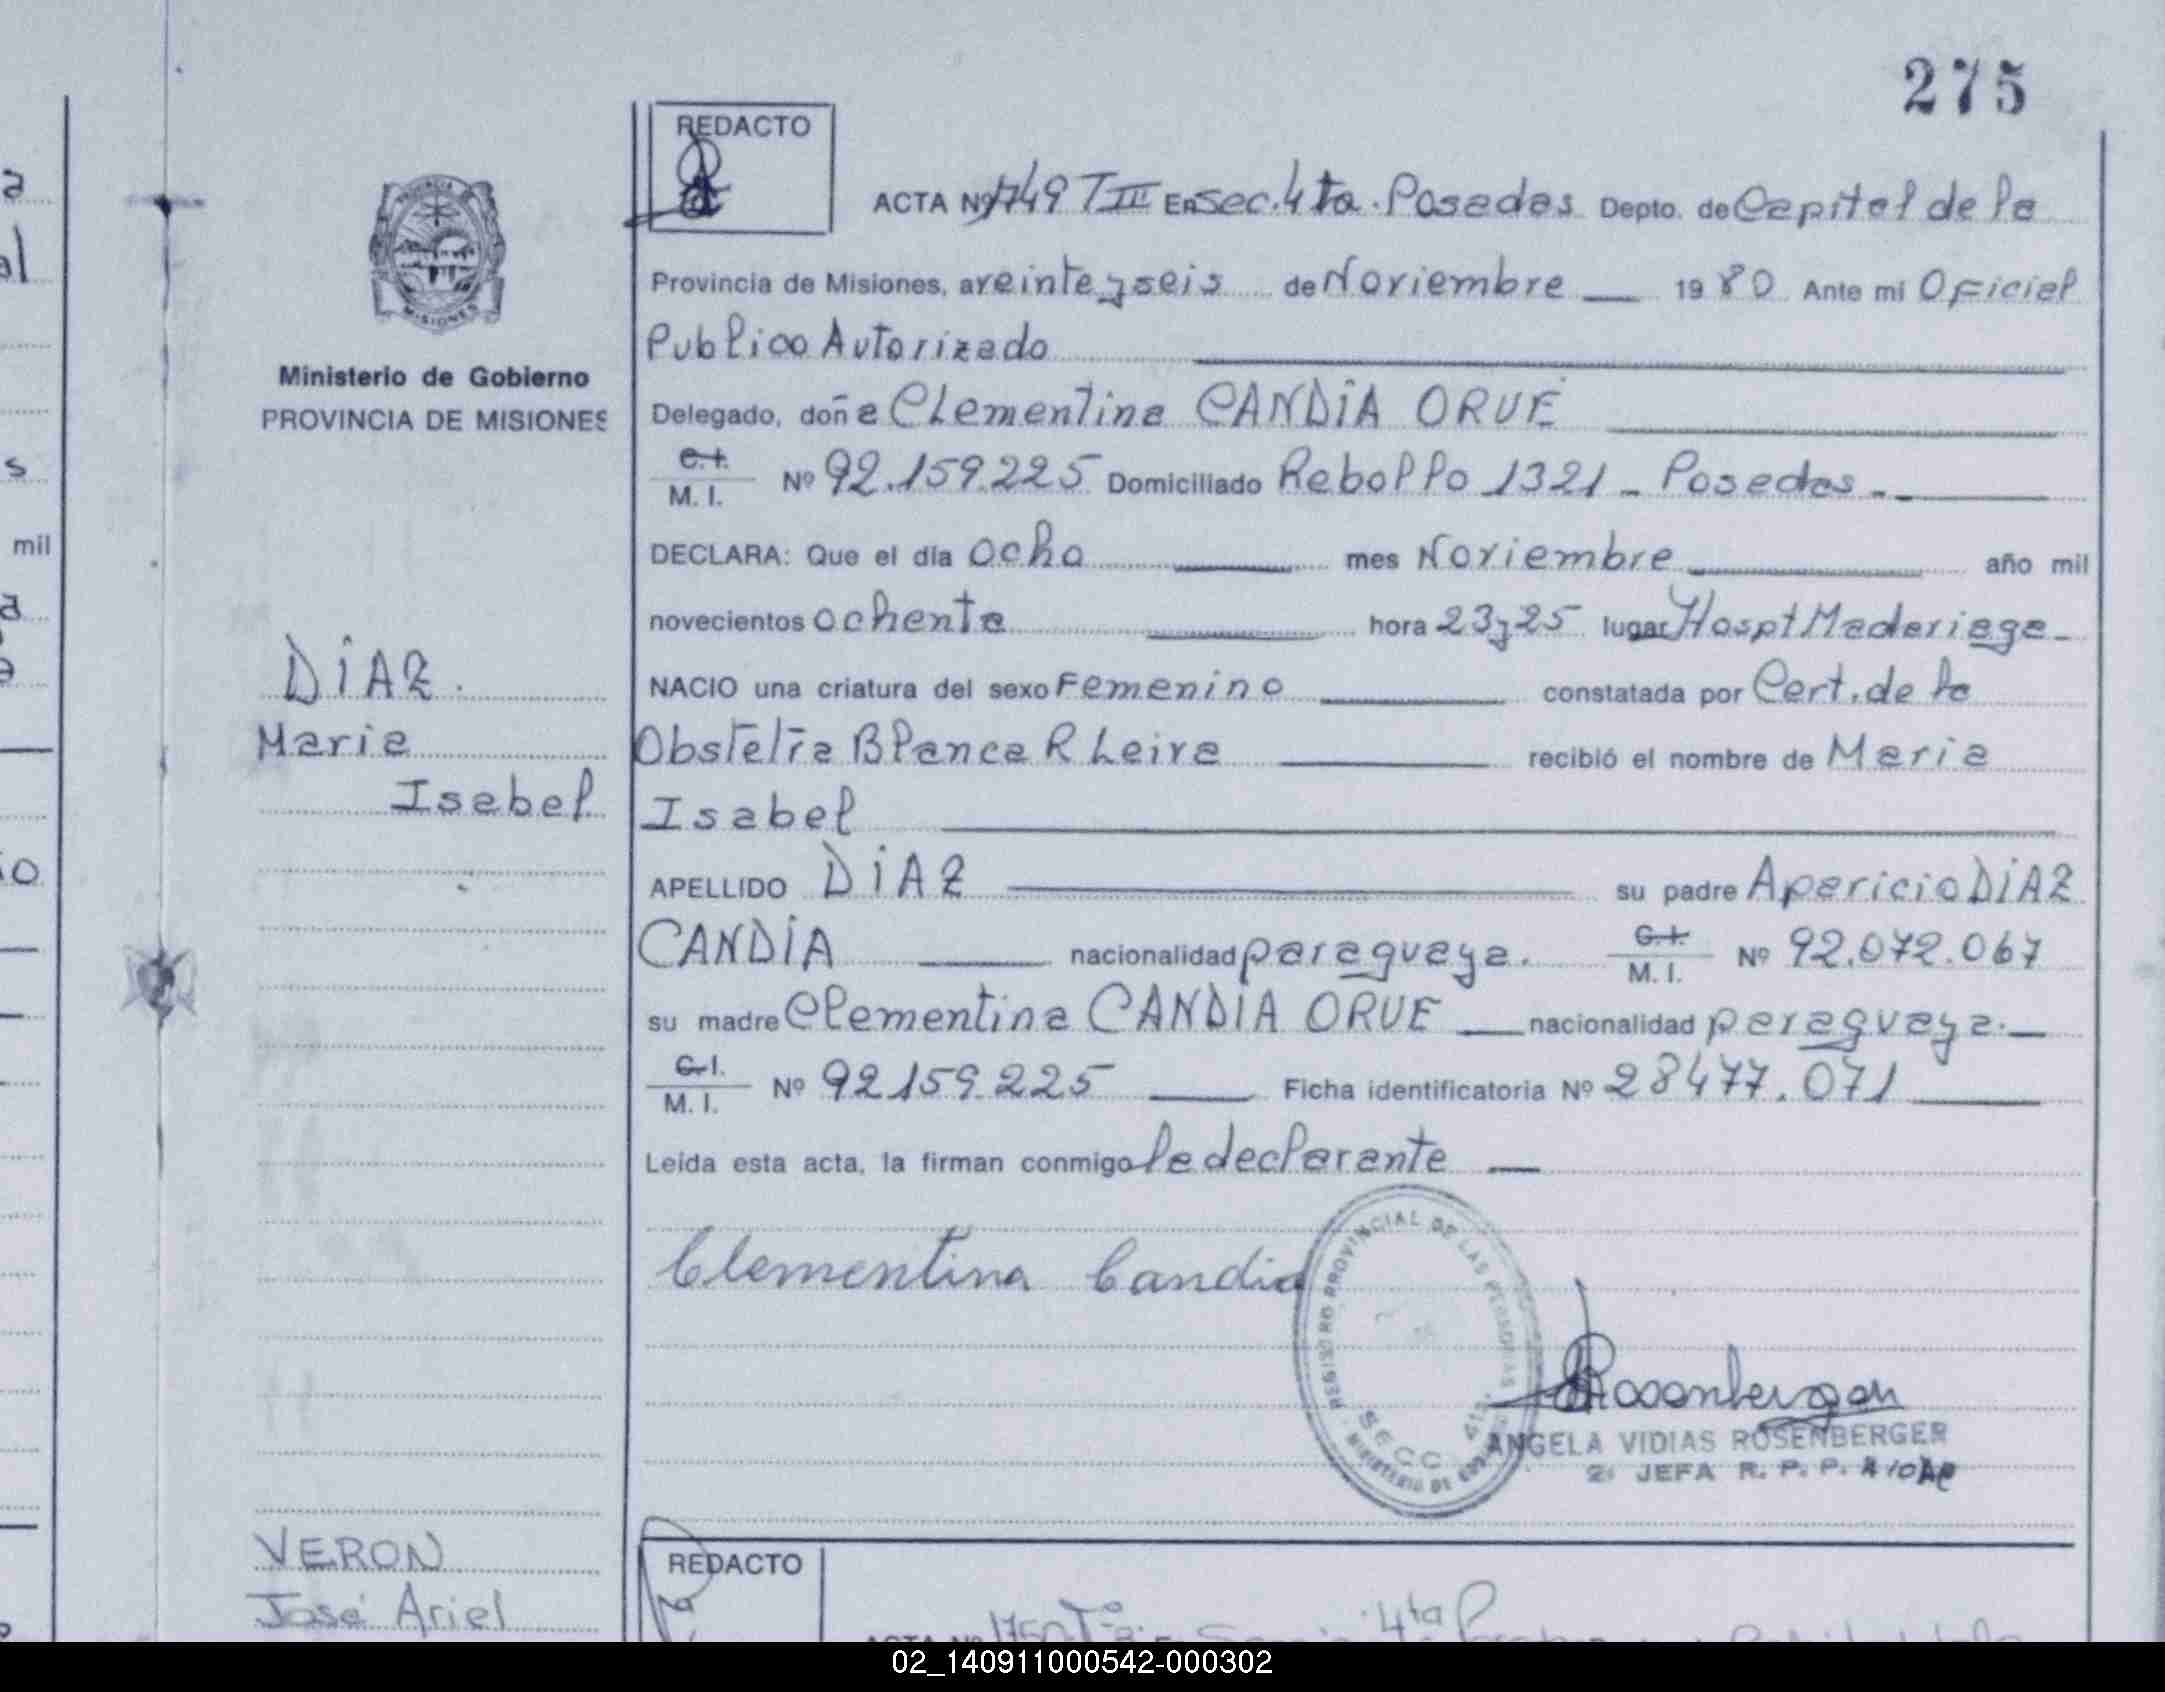 275
REDACTO
ACTA Nº 1749 T III En Sec. 4ta. Posadas Depto. de Capital de la
Provincia de Misiones, a veinte y seis de Noviembre 1980 Ante mi Oficial
Publico Autorizado
Delegado, doña Clementina CANDIA ORUE
C.I.
M. I. Nº 92.159.225 Domiciliado Rebollo 1321 - Posadas -
DECLARA: Que el día ocho mes Noviembre año mil
novecientos ochenta hora 23y25 lugar Hospt Madariaga -
NACIO una criatura del sexo Femenino constatada por Cert. de la
Blanca R Leiva recibió el nombre de Maria
Isabel
APELLIDO DIAZ su padre Aparicio DIAZ
CANDIA nacionalidad paraguaya. C.I.
M. I. Nº 92.072.067
su madre Clementina CANDIA ORUE nacionalidad paraguaya.
C.I.
M. I. Nº 92159.225 Ficha identificatoria Nº 28477.071
Leída esta acta, la firman conmigo la declarante
Clementina Candia
REGISTRO PROVINCIAL DE LAS PERSONAS
SECC. 4ta.
MINISTERIO DE GOBIERNO
Rosenberger
ANGELA VIDIAS ROSENBERGER
2ª JEFA R. P. P.
MISIONES
Ministerio de Gobierno
PROVINCIA DE MISIONES
DIAZ.
Maria
Isabel
VERON
José Ariel
REDACTO
mil
02_140911000542-000302